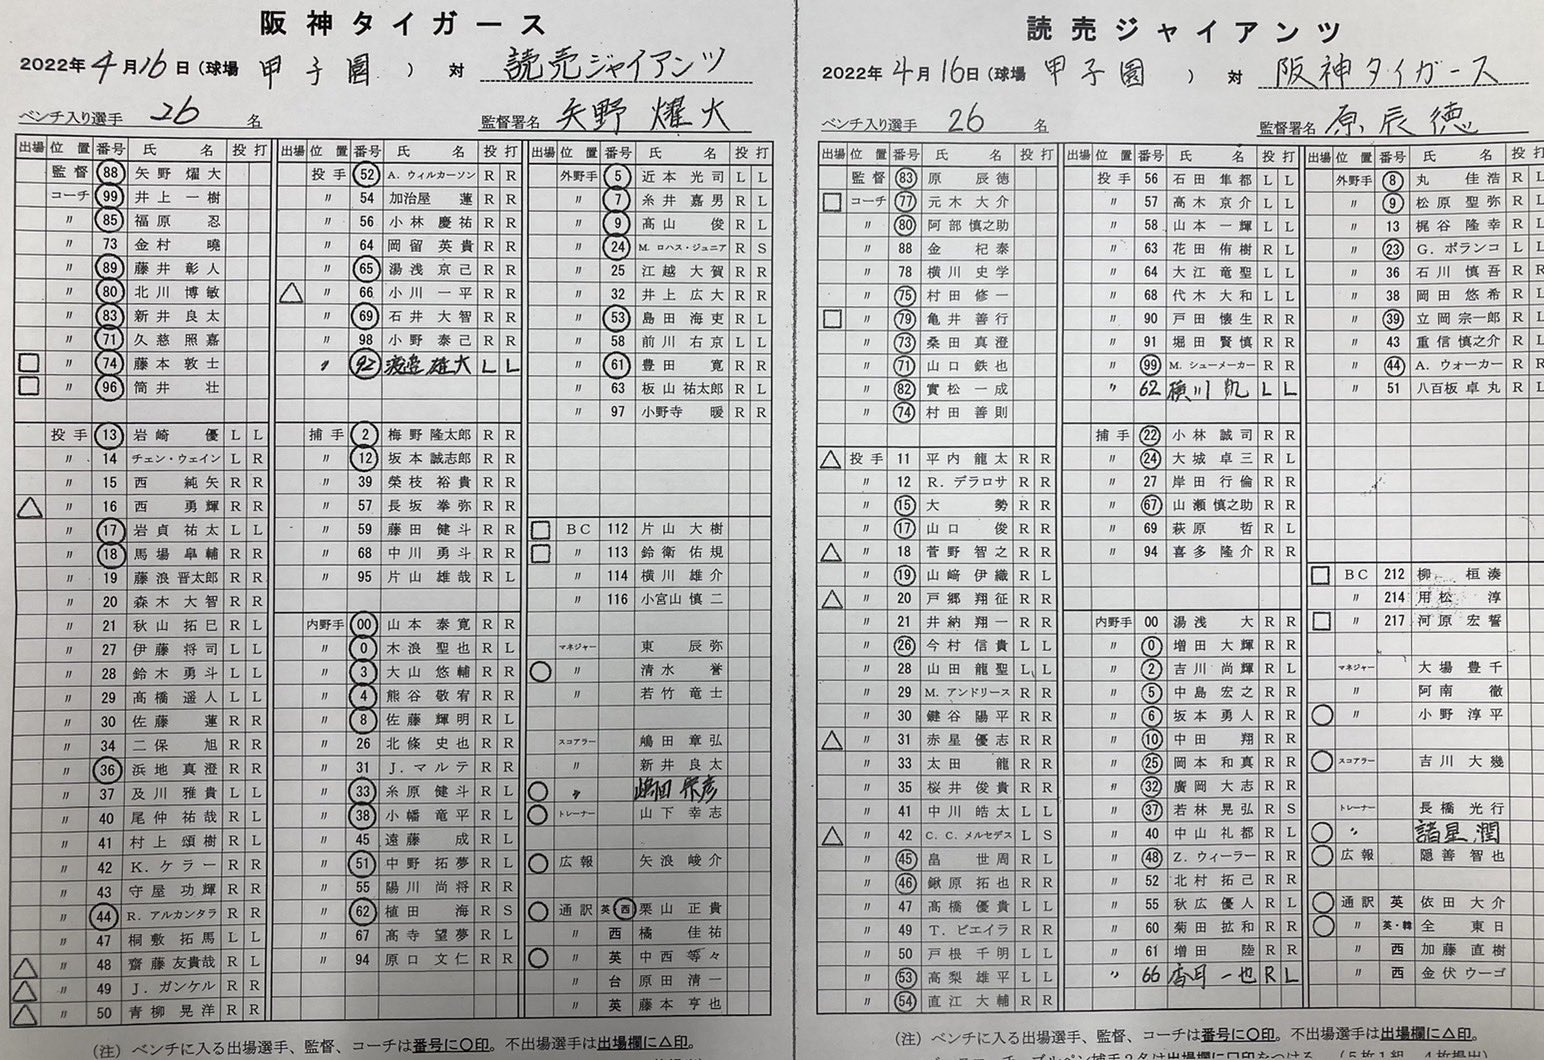 阪神タイガース
2022年4月16日(球場 甲子園 ) 対 読売ジャイアンツ
ベンチ入り選手 26 名 監督署名 矢野 燿大
出場 位置 番号 氏名 投 打
監督 88 矢野 燿大
コーチ 99 井上 一樹
〃 85 福原 忍
〃 73 金村 曉
〃 89 藤井 彰人
〃 80 北川 博敏
〃 83 新井 良太
〃 71 久慈 照嘉
□ 〃 74 藤本 敦士
□ 〃 96 筒井 壮
投手 13 岩崎 優 L L
〃 14 チェン・ウェイン L R
〃 15 西 純矢 R R
△ 〃 16 西 勇輝 R R
〃 17 岩貞 祐太 L L
〃 18 馬場 皐輔 R R
〃 19 藤浪 晋太郎 R R
〃 20 森木 大智 R R
〃 21 秋山 拓巳 R L
〃 27 伊藤 将司 L L
〃 28 鈴木 勇斗 L L
〃 29 髙橋 遥人 L L
〃 30 佐藤 蓮 R R
〃 34 二保 旭 R R
〃 36 浜地 真澄 R R
〃 37 及川 雅貴 L L
〃 40 尾仲 祐哉 R L
〃 41 村上 頌樹 R L
〃 42 K．ケラー R R
〃 43 守屋 功輝 R R
〃 44 R．アルカンタラ R R
〃 47 桐敷 拓馬 L L
△ 〃 48 齋藤 友貴哉 R L
△ 〃 49 J．ガンケル R R
△ 〃 50 青柳 晃洋 R R
出場 位置 番号 氏名 投 打
投手 52 A．ウィルカーソン R R
〃 54 加治屋 蓮 R R
〃 56 小林 慶祐 R R
〃 64 岡留 英貴 R R
〃 65 湯浅 京己 R R
△ 〃 66 小川 一平 R R
〃 69 石井 大智 R R
〃 98 小野 泰己 R R
〃 92 渡邉 雄大 L L
捕手 2 梅野 隆太郎 R R
〃 12 坂本 誠志郎 R R
〃 39 榮枝 裕貴 R R
〃 57 長坂 拳弥 R R
〃 59 藤田 健斗 R R
〃 68 中川 勇斗 R R
〃 95 片山 雄哉 R L
内野手 00 山本 泰寛 R R
〃 0 木浪 聖也 R L
〃 3 大山 悠輔 R R
〃 4 熊谷 敬宥 R R
〃 8 佐藤 輝明 R L
〃 26 北條 史也 R R
〃 31 J．マルテ R R
〃 33 糸原 健斗 R L
〃 38 小幡 竜平 R L
〃 45 遠藤 成 R L
〃 51 中野 拓夢 R L
〃 55 陽川 尚将 R R
〃 62 植田 海 R S
〃 67 高寺 望夢 R L
〃 94 原口 文仁 R R
出場 位置 番号 氏名 投 打
外野手 5 近本 光司 L L
〃 7 糸井 嘉男 R L
〃 9 髙山 俊 R L
〃 24 M．ロハス・ジュニア R S
〃 25 江越 大賀 R R
〃 32 井上 広大 R R
〃 53 島田 海吏 R L
〃 58 前川 右京 L L
〃 61 豊田 寛 R R
〃 63 板山 祐太郎 R L
〃 97 小野寺 暖 R R
□ BC 112 片山 大樹
□ 〃 113 鈴衛 佑規
〃 114 横川 雄介
〃 116 小宮山 慎二
マネジャー 東 辰弥
○ 〃 清水 誉
〃 若竹 竜士
スコアラー 嶋田 章弘
〃 新井 良太
○ 〃 嶋田 宗彦
○ トレーナー 山下 幸志
○ 広報 矢浪 峻介
○ 通訳 英 西 栗山 正貴
〃 西 橘 佳祐
○ 〃 英 中西 等々
〃 台 原田 清一
〃 英 藤本 亨也
(注) ベンチに入る出場選手、監督、コーチは番号に○印。不出場選手は出場欄に△印。
読売ジャイアンツ
2022年4月16日(球場 甲子園 ) 対 阪神タイガース
ベンチ入り選手 26 名 監督署名 原 辰徳
出場 位置 番号 氏名 投 打
監督 83 原 辰徳
□ コーチ 77 元木 大介
〃 80 阿部 慎之助
〃 88 金 杞泰
〃 78 横川 史学
〃 75 村田 修一
□ 〃 79 亀井 善行
〃 73 桑田 真澄
〃 71 山口 鉄也
〃 82 實松 一成
〃 74 村田 善則
△ 投手 11 平内 龍太 R R
〃 12 R．デラロサ R R
〃 15 大勢 R R
〃 17 山口 俊 R R
△ 〃 18 菅野 智之 R R
〃 19 山﨑 伊織 R L
△ 〃 20 戸郷 翔征 R R
〃 21 井納 翔一 R R
〃 26 今村 信貴 L L
〃 28 山田 龍聖 L L
〃 29 M．アンドリース R R
〃 30 鍵谷 陽平 R R
△ 〃 31 赤星 優志 R R
〃 33 太田 龍 R R
〃 35 桜井 俊貴 R R
〃 41 中川 皓太 L L
△ 〃 42 C．C．メルセデス L S
〃 45 畠 世周 R L
〃 46 鍬原 拓也 R R
〃 47 髙橋 優貴 L L
〃 49 T．ビエイラ R R
〃 50 戸根 千明 L L
〃 53 高梨 雄平 L L
〃 54 直江 大輔 R R
出場 位置 番号 氏名 投 打
投手 56 石田 隼都 L L
〃 57 高木 京介 L L
〃 58 山本 一輝 L L
〃 63 花田 侑樹 R L
〃 64 大江 竜聖 L L
〃 68 代木 大和 L L
〃 90 戸田 懐生 R R
〃 91 堀田 賢慎 R R
〃 99 M．シューメーカー R R
〃 62 横川 凱 L L
捕手 22 小林 誠司 R R
〃 24 大城 卓三 R L
〃 27 岸田 行倫 R R
〃 67 山瀬 慎之助 R R
〃 69 萩原 哲 R L
〃 94 喜多 隆介 R R
内野手 00 湯浅 大 R R
〃 0 増田 大輝 R R
〃 2 吉川 尚輝 R L
〃 5 中島 宏之 R R
〃 6 坂本 勇人 R R
〃 10 中田 翔 R R
〃 25 岡本 和真 R R
〃 32 廣岡 大志 R R
〃 37 若林 晃弘 R S
〃 40 中山 礼都 R L
〃 48 Z．ウィーラー R R
〃 52 北村 拓己 R R
〃 55 秋広 優人 R L
〃 60 菊田 拡和 R R
〃 61 増田 陸 R R
〃 66 香月 一也 R L
出場 位置 番号 氏名 投
外野手 8 丸 佳浩 R L
〃 9 松原 聖弥 R L
〃 13 梶谷 隆幸 R L
〃 23 G．ポランコ L L
〃 36 石川 慎吾 R R
〃 38 岡田 悠希 R L
〃 39 立岡 宗一郎 R L
〃 43 重信 慎之介 R L
〃 44 A．ウォーカー R R
〃 51 八百板 卓丸 R L
□ BC 212 柳 桓湊
〃 214 用松 淳
□ 〃 217 河原 宏誓
マネジャー 大場 豊千
〃 阿南 徹
○ 〃 小野 淳平
○ スコアラー 吉川 大幾
トレーナー 長橋 光行
○ 〃 諸星 潤
○ 広報 隠善 智也
○ 通訳 英 依田 大介
○ 〃 英・韓 全 東日
〃 西 加藤 直樹
〃 西 金伏 ウーゴ
(注) ベンチに入る出場選手、監督、コーチは番号に○印。不出場選手は出場欄に△印。